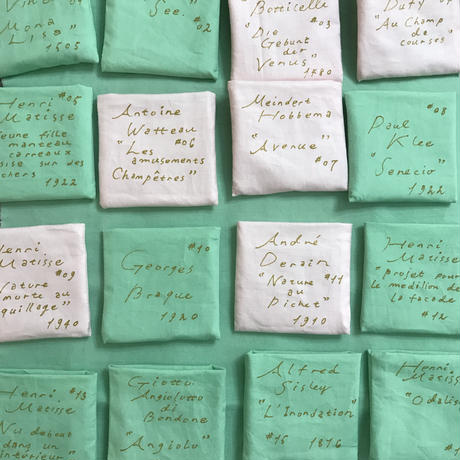 Vinci
"Mona
Lisa"
1505
See.
#02
Botticelle
#03
"Die
Geburt
der
Venus"
1480
Dufy
"Au Champ
de
courses"
Henri #05
Matisse
jeune fille
manteau
carreaux
sise sur des
chers
1922
Antoine
Watteau
#06
"Les
amusements
Champêtres"
Meindert
Hobbema
"Avenue"
#07
#08
Paul
Klee
"Senecio"
1922
Henri
Matisse
#09
Nature
morte au
quillage"
1940
#10
Georges
Braque
1920
André
Derain
"Nature #11
au
Pichet"
1910
Henri
Matisse
"projet pour
le medilion de
la facade
#12
Henri #13
Matisse
Nu debout
dans un
intérieur"
Giotto
Angiolotto
di
Bondone
"Angiolu"
Alfred
Sisley
"L'Inondation"
#15 1876
Henri
Matisse
"Odalis